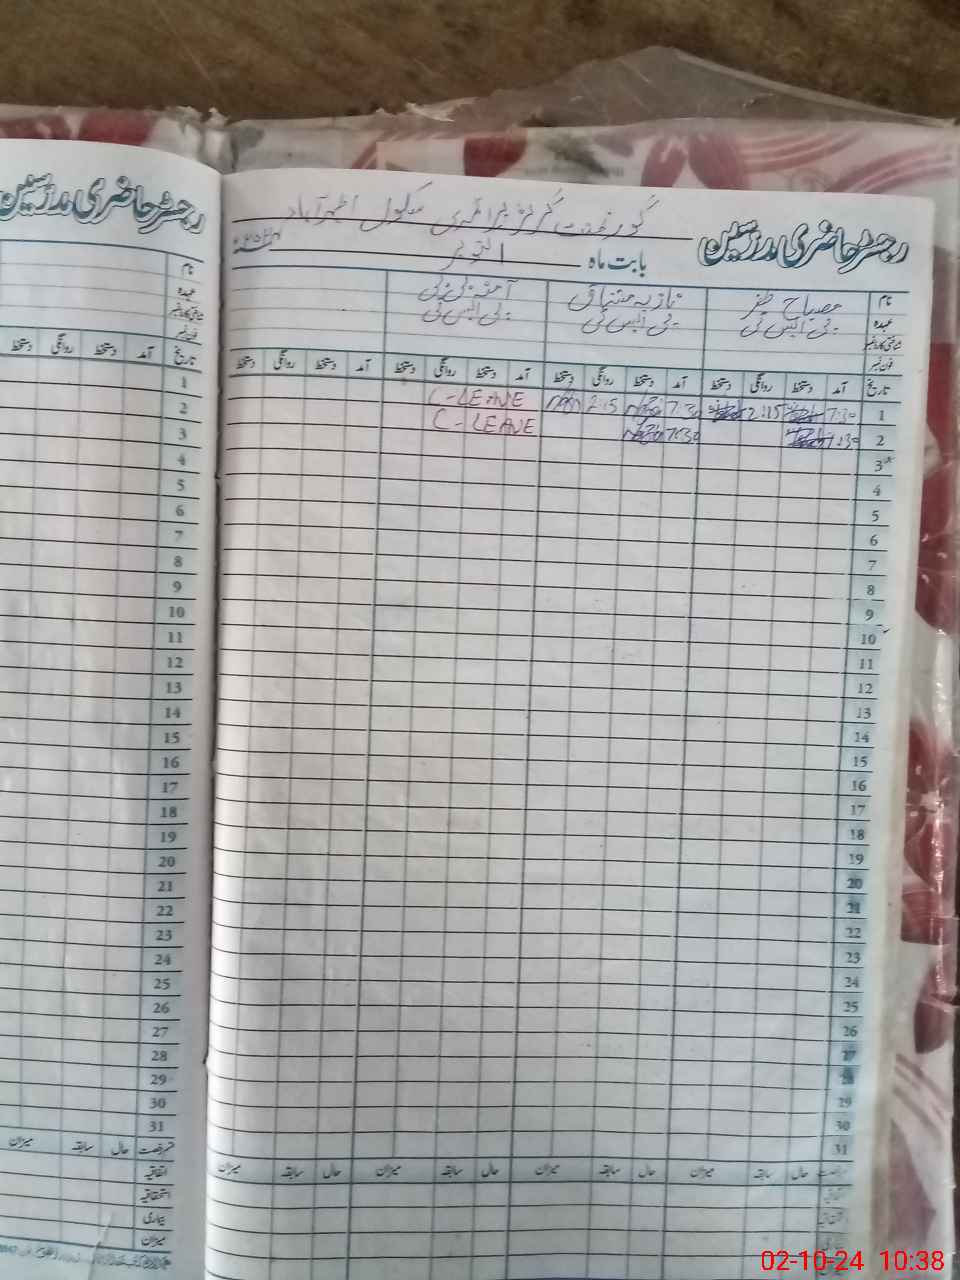 رجسٹر حاضری مدرسین گورنمنٹ گرلز پرائمری سکول اظہر آباد
بابت ماہ اکتوبر
نام مصباح ظفر نازیہ مشتاق آمنہ بی بی
عہدہ پی ایس ٹی پی ایس ٹی پی ایس ٹی
شناختی کارڈ نمبر
فون نمبر
تاریخ آمد دستخط روانگی دستخط آمد دستخط روانگی دستخط آمد دستخط روانگی دستخط آمد دستخط روانگی دستخط
1 7:30 2:15 7:30 2:15 C-LEAVE
2 7:30 7:30 C-LEAVE
3
4
5
6
7
8
9
10
11
12
13
14
15
16
17
18
19
20
21
22
23
24
25
26
27
28
29
30
31
حال سابقہ میزان حال سابقہ میزان حال سابقہ میزان حال سابقہ میزان
رجسٹر حاضری مدرسین
نام
عہدہ
شناختی کارڈ نمبر
فون نمبر
تاریخ آمد دستخط روانگی دستخط
1
2
3
4
5
6
7
8
9
10
11
12
13
14
15
16
17
18
19
20
21
22
23
24
25
26
27
28
29
30
31
قسم رخصت حال سابقہ میزان
اتفاقیہ
استحقاقیہ
بیماری
میزان
02-10-24 10:38